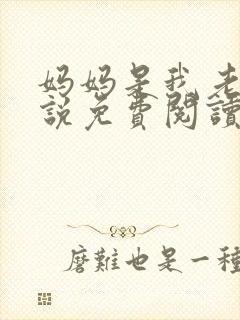 妈妈是我老
說免費閱讀
磨難也是一種